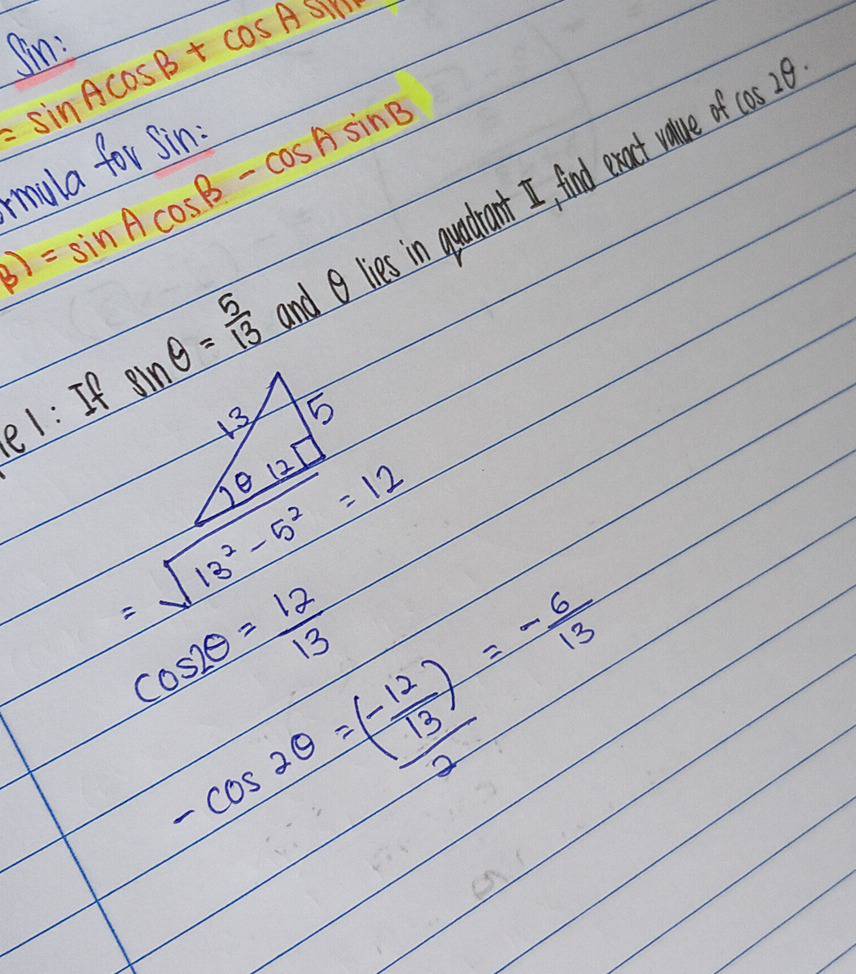 Sin:
= sin A cos B + cos A sin
formula for Sin:
B) = sin A cos B - cos A sin B
le 1: If sin θ = 5/13 and θ lies in quadrant II, find exact value of cos 2θ.
13 5
θ 12
= √13² - 5² = 12
cos2θ = 12/13
- cos 2θ = (-12/13)/2 = - 6/13